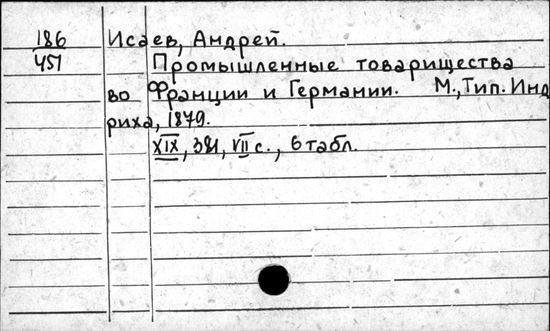 186 Исаев, Андрей.
451 Промышленные товарищества
во Франции и Германии. М., Тип. Инд
риха, 1879.
XIX, 381, VII с., 6 табл.